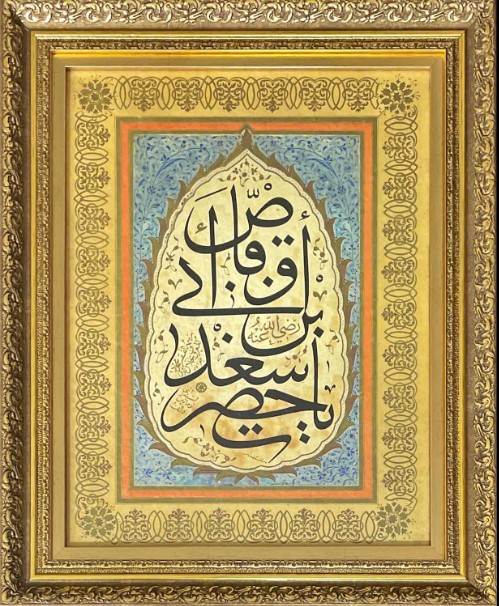 يا حضرت
سعد
بن أبى
وقاص
رضي الله عنه